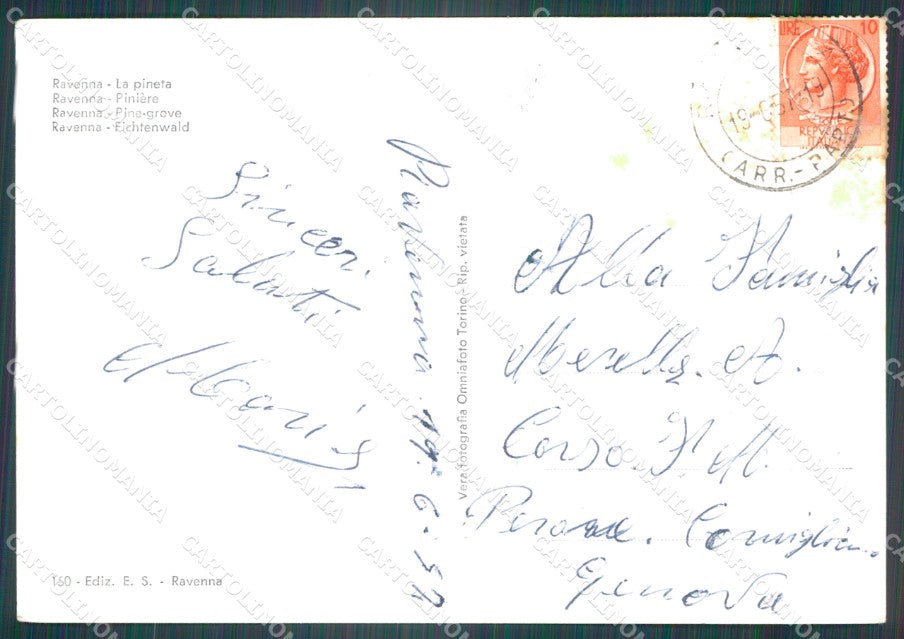 Ravenna - La pineta
Ravenna - Pinière
Ravenna - Pine-grove
Ravenna - Fichtenwald
Sinceri
Saluti
Ravenna 19-6-57
Vera fotografia Omniafoto Torino - Rip. vietata
160 - Ediz. E. S. - Ravenna
LIRE 10
REPUBBLICA
ITALIANA
19-6-57
CARR.-PAPF
Alla Famiglia
Morella. A.
Corso
M.
Genova
CARTOLINOMANIA